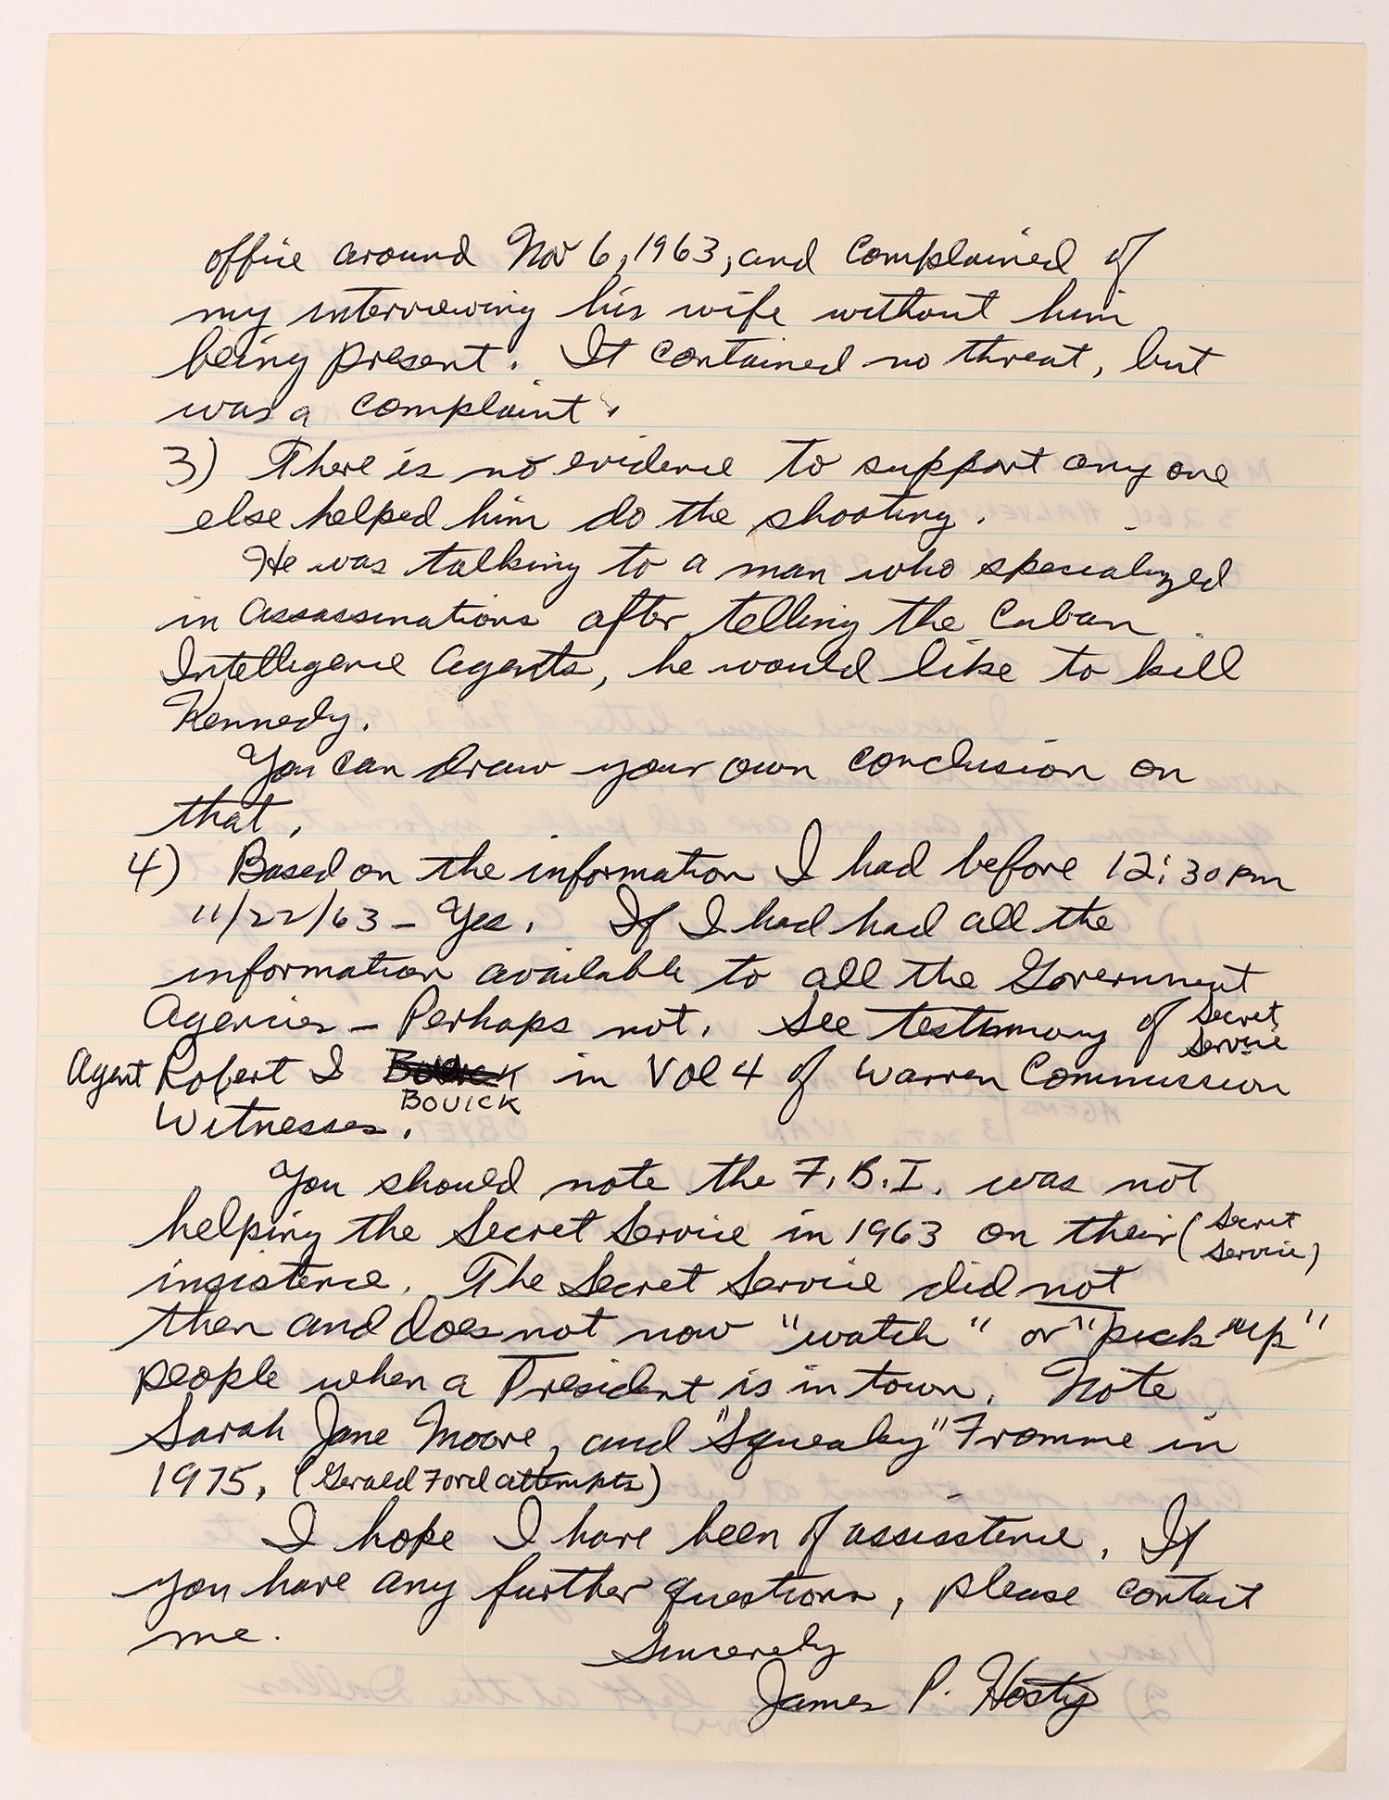 office around Nov 6, 1963, and complained of
my interviewing his wife without him
being present. It contained no threat, but
was a complaint.
3) There is no evidence to support any one
else helped him do the shooting.
He was talking to a man who specialized
in assassinations after telling the Cuban
Intelligence Agents, he would like to kill
Kennedy.
You can draw your own conclusion on
that.
4) Based on the information I had before 12:30 pm
11/22/63 - Yes. If I had had all the
information available to all the Government
Agencies - Perhaps not. See testimony of Secret
Service
Agent Robert I in Vol 4 of Warren Commission
BOUICK
Witnesses.
You should note the F.B.I. was not
helping the Secret Service in 1963 on their (Secret
Service)
insistence. The Secret Service did not
then and does not now "watch" or "pick up"
people when a President is in town. Note
Sarah Jane Moore, and "Squeaky" Fromme in
1975. (Gerald Ford attempts)
I hope I have been of assisstence. If
you have any further questions, please contact
me.
Sincerely
James P. Hosty